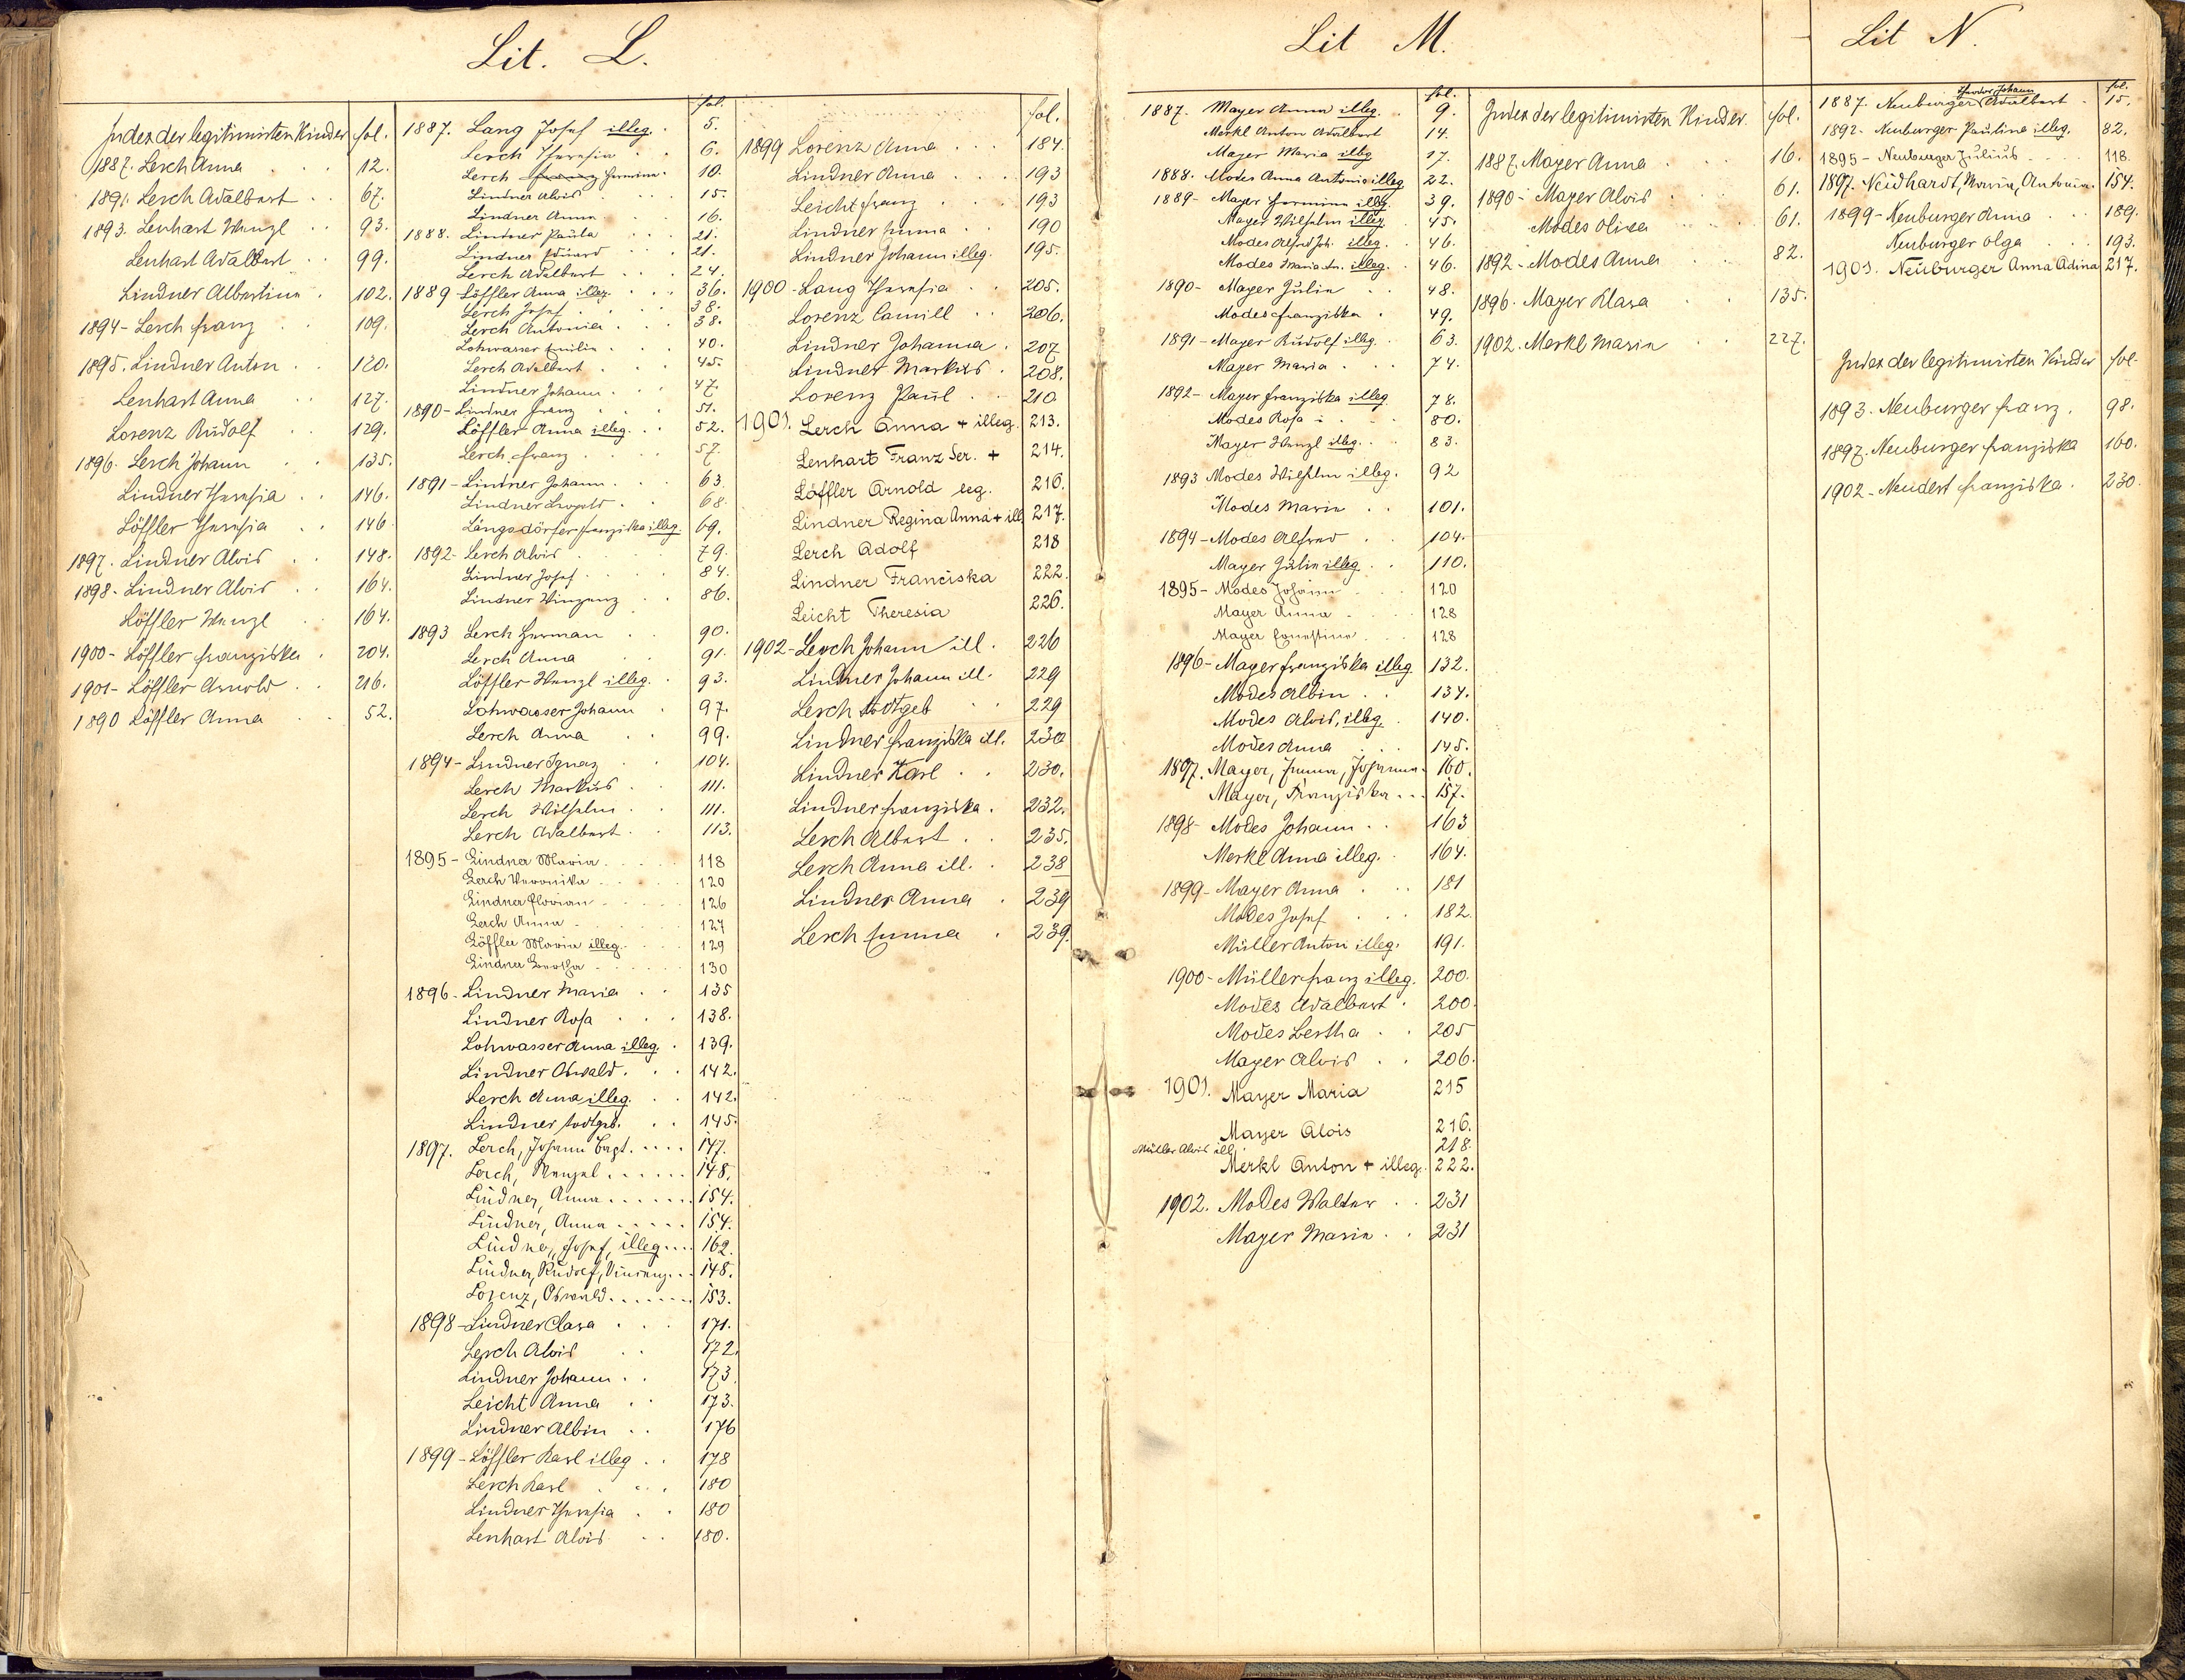 Lit. L.
Index der legitimirten Kinder fol.
1887. Lerch Anna 12.
1891. Lerch Adalbert 67.
1893. Lenhart Wenzl 93.
Lenhart Adalbert 99.
Lindner Albertine 102.
1894 - Lerch Franz 109.
1895. Lindner Anton 120.
Lenhart Anna 127.
Lorenz Rudolf 129.
1896. Lerch Johann 135.
Lindner Theresia 146.
Löffler Theresia 146
1897. Lindner Alois 148.
1898. Lindner Alois 164.
Löffler Wenzl 164.
1900 - Löffler Franziska 204.
1901 - Löffler Arnold 216.
1890 Löffler Anna 52.
fol.
1887. Lang Josef illeg. 5.
Lerch Theresia 6.
Lerch Franz Hermine 10.
Lindner Alois 15.
Lindner Anna 16.
1888. Lindner Paula 21.
Lindner Eduard 21.
Lerch Adalbert 24.
1889 - Löffler Anna illeg. 36.
Lerch Josef 38.
Lerch Antonia 38.
Lohwasser Emilie 40.
Lerch Adalbert 45.
Lindner Johann 47.
1890 - Lindner Franz 51.
Löffler Anna illeg. 52.
Lerch Franz 57.
1891 - Lindner Johann 63.
Lindner Leopold 68.
Längsdörfer Franziska illeg. 69.
1892 - Lerch Alois 79.
Lindner Josef 84.
Lindner Vinzenz 86.
1893 Lerch Herman 90.
Lerch Anna 91.
Löffler Wenzl illeg. 93.
Lohwasser Johann 97.
Lerch Anna 99.
1894 - Lindner Ignaz 104.
Lerch Markus 111.
Lerch Wilhelm 111.
Lerch Adalbert 113.
1895 - Lindner Maria 118
Lerch Veronika 120
Lindner Florian 126
Lerch Anna 127
Löffler Maria illeg. 129
Lindner Bertha 130
1896 - Lindner Maria 135
Lindner Rosa 138.
Lohwasser Anna illeg. 139.
Lindner Oswald 142.
Lerch Anna illeg. 142.
Lindner todtgeb. 145.
1897. Lerch, Johann Bapt. 147.
Lerch, Wenzel 148.
Lindner, Anna 154.
Lindner, Anna 154.
Lindner, Josef, illeg. 162.
Lindner, Rudolf, Vincenz 148.
Lorenz, Oswald 153.
1898 - Lindner Clara 171.
Lerch Alois 172.
Lindner Johann 173
Leicht Anna 173.
Lindner Albin 176
1899 - Löffler Karl illeg. 178
Lerch Karl 180
Lindner Theresia 180
Lenhart Alois 180.
fol.
1899 Lorenz Anna 184.
Lindner Anna 193
Leicht Franz 193
Lindner Emma 190
Lindner Johann illeg. 195.
1900 - Lang Theresia 205.
Lorenz Camill 206.
Lindner Johanna 207
Lindner Markus 208.
Lorenz Paul 210
1901. Lerch Anna + illeg. 213.
Lenhart Franz Ser. + 214.
Löffler Arnold leg. 216.
Lindner Regina Anna + ill. 217.
Lerch Adolf 218
Lindner Franciska 222.
Leicht Theresia 226.
1902 - Lerch Johann ill. 226
Lindner Johann ill. 229
Lerch todtgeb 229
Lindner Franziska ill. 230
Lindner Karl 230.
Lindner Franziska 232.
Lerch Albert 235.
Lerch Anna ill. 238
Lindner Anna 239
Lerch Emma 239.
Lit M.
fol.
1887. Mayer Anna illeg. 9.
Merkl Anton Adalbert 14.
Mayer Maria illeg 17.
1888. Modes Anna Antonia illeg 22.
1889 - Mayer Hermine illeg. 39.
Mayer Wilhelm illeg 45.
Modes Alfred Joh. illeg. 46.
Modes Maria An. illeg. 46.
1890 - Mayer Julie 48.
Modes Franziska 49.
1891 - Mayer Rudolf illeg. 63.
Mayer Maria 74.
1892 - Mayer Franziska illeg 78.
Modes Rosa 80.
Mayer Wenzl illeg. 83.
1893 Modes Wilhelm illeg. 92
Modes Marie 101.
1894 - Modes Alfred 104.
Mayer Julie illeg. 110.
1895 - Modes Johann 120
Mayer Anna 128
Mayer Ernestine 128
1896 - Mayer Franziska illeg 132.
Modes Albin 134.
Modes Alois, illeg. 140.
Modes Anna 145.
1897. Mayer, Emma, Johanna 160.
Mayer, Franziska 157.
1898 - Modes Johann 163
Merkl Anna illeg. 164.
1899 - Mayer Anna 181
Modes Josef 182.
Müller Anton illeg. 191.
1900 - Müller Franz illeg. 200.
Modes Adalbert 200
Modes Bertha 205
Mayer Alois 206.
1901. Mayer Maria 215
Mayer Alois 216.
Müller Alois ill. 218.
Merkl Anton + illeg. 222.
1902. Modes Walter 231
Mayer Marie 231
Index der legitimirten Kinder. fol.
1887. Mayer Anna 16.
1890 - Mayer Alois 61.
Modes Oliva 61.
1892 - Modes Anna 82.
1896. Mayer Klara 135.
1902. Merkl Marie 227.
Lit N.
fol.
Theodor Johann
1887. Neuburger Adalbert 15.
1892 - Neuburger Pauline illeg. 82.
1895 - Neuburger Julius 118.
1897. Neidhardt, Maria, Antonia. 154.
1899 - Neuburger Anna 189.
Neuburger Olga 193.
1901. Neuburger Anna Adina 217.
Index der legitimirten Kinder fol.
1893. Neuburger Franz. 98.
1897. Neuburger Franziska 160.
1902 - Neudert Franziska. 230.